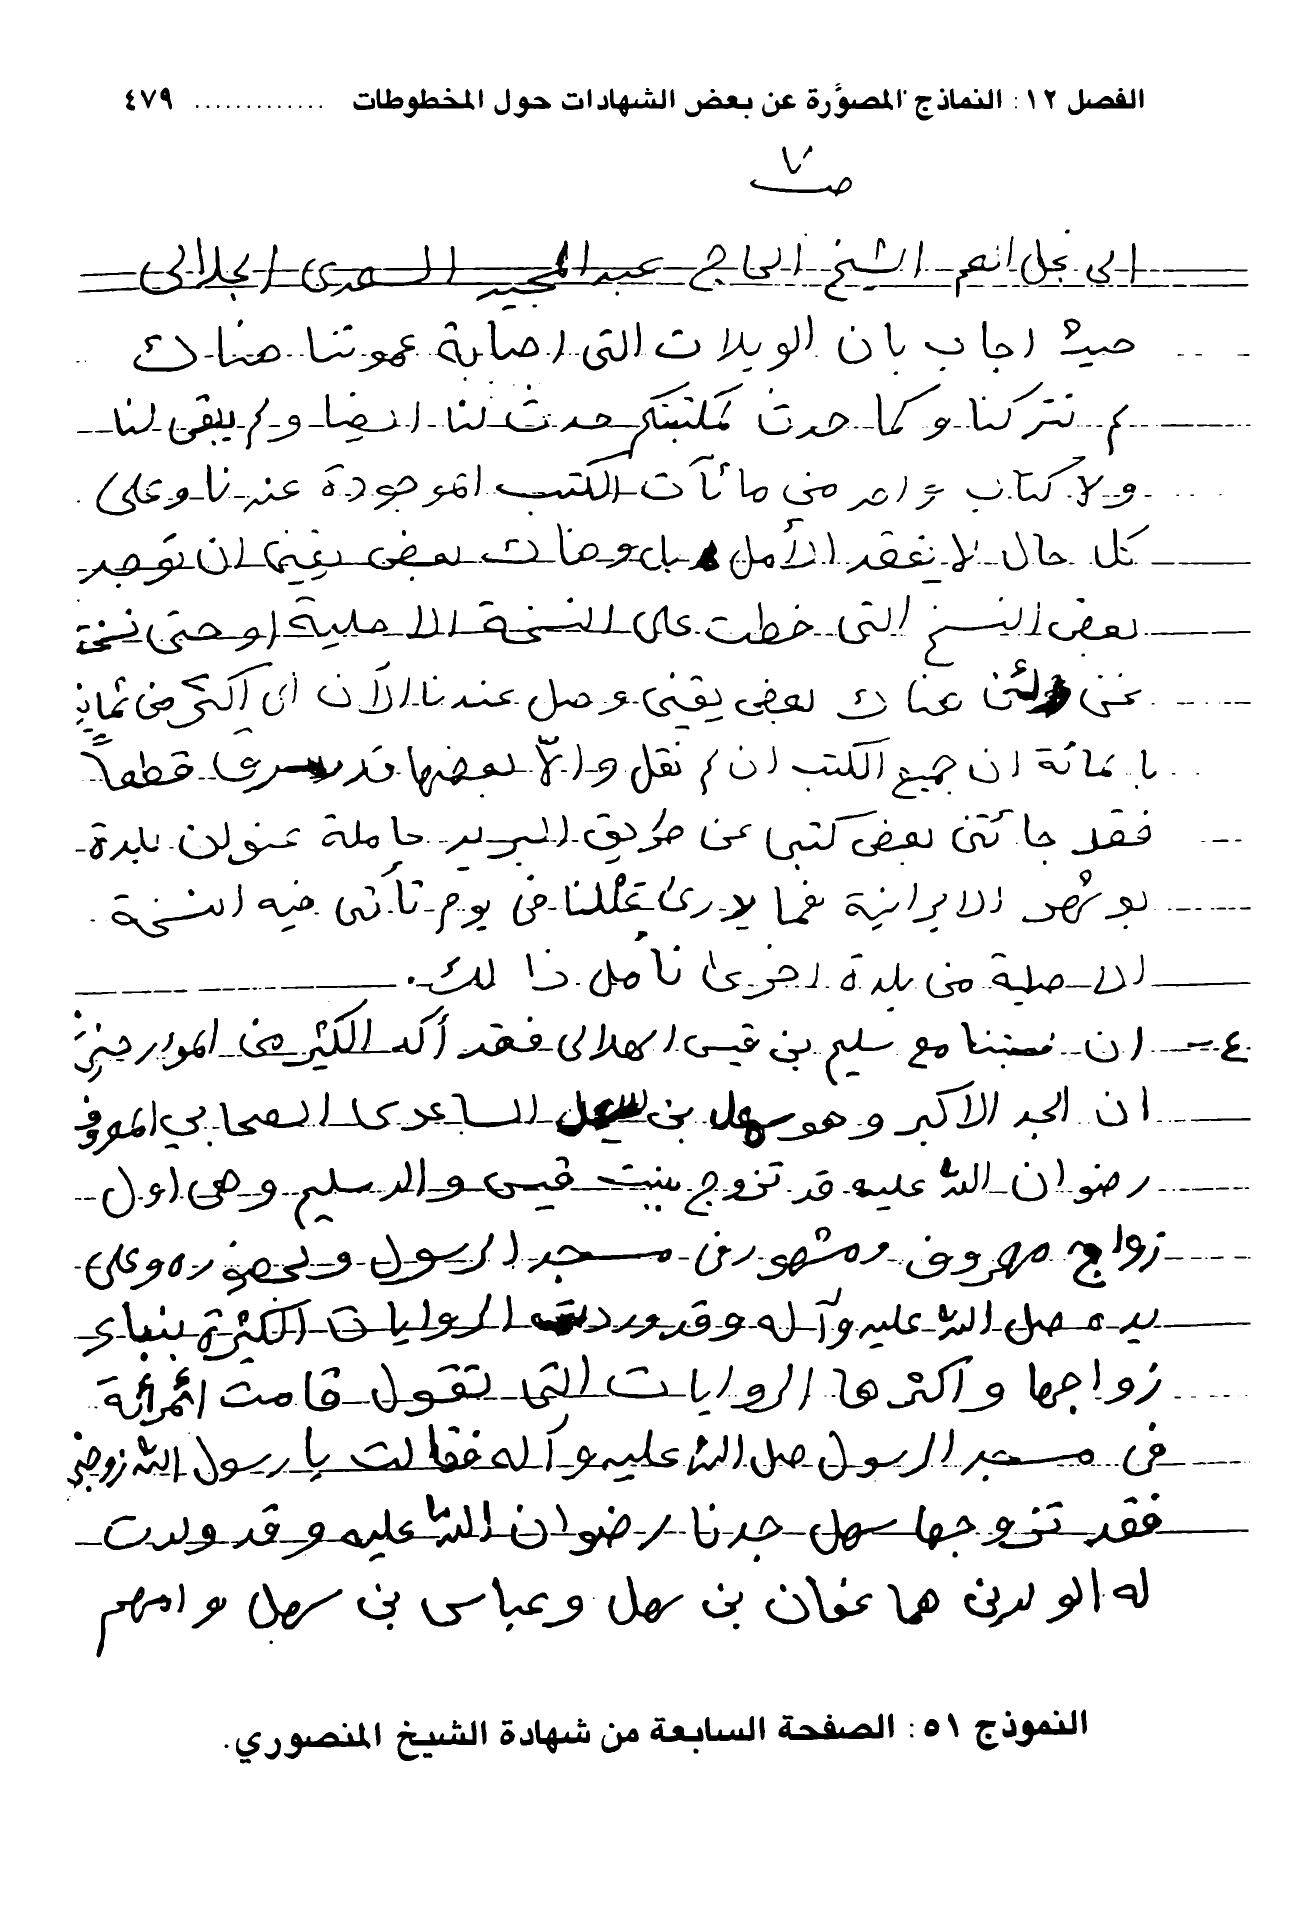 الفصل ١٢: النماذج المصوّرة عن بعض الشهادات حول المخطوطات ............. ٤٧٩
صـ ٧
الى نجل انعم الشيخ الحاج عبد المجيد السعدى الجلالى
حيث اجاب بان الويلات التى اصابة عموتنا هناك
لم تتركنا وكما حدث لمكتبتكم حدث لنا ايضا ولم يبقى لنا
ولا كتاب واحد من مائآت الكتب الموجودة عندنا وعلى
كل حال لا يفقد الأمل بل وهناك بعض يقين ان توجد
بعض النسخ التى خطت على النسخة الاصلية او حتى نسخة
نحن ولئن هناك بعض يقينى وصل عندنا الآن اى اكثر من ثمانين
بالمائة ان جميع الكتب ان لم نقل والّا بعضها قد سرق قطعاً
فقد جائتنى بعض كتبى عن طريق البريد حاملة عنوان بلدة
بوشهر الايرانية فما يدرى لعلنا فى يوم تأتى فيه النسخة
الاصلية من بلدة اخرى نأمل ذا لك.
٤- ان نسبنا مع سليم بن قيس الهلالى فقد أكد الكثير من المؤرخين
ان الجد الاكبر وهو سهل بن سعد الساعدى الصحابي المعروف
رضوان اللّه عليه قد تزوج ببنت قيس والد سليم وهى اول
زواج معروف ومشهور فى مسجد الرسول وبحضوره وعلى
يده صل اللّه عليه وآله وقد وردت الروايات الكثيرة بنباء
زواجها وأكثرها الروايات التى تقول قامت امرأة
فى مسجد الرسول صل اللّه عليه وآله فقالت يا رسول اللّه زوجنى
فقد تزوجها سهل جدنا رضوان اللّه عليه وقد ولدت
له الولدين هما عفان بن سهل وعباس بن سهل وامهم
النموذج ٥١: الصفحة السابعة من شهادة الشيخ المنصوري.